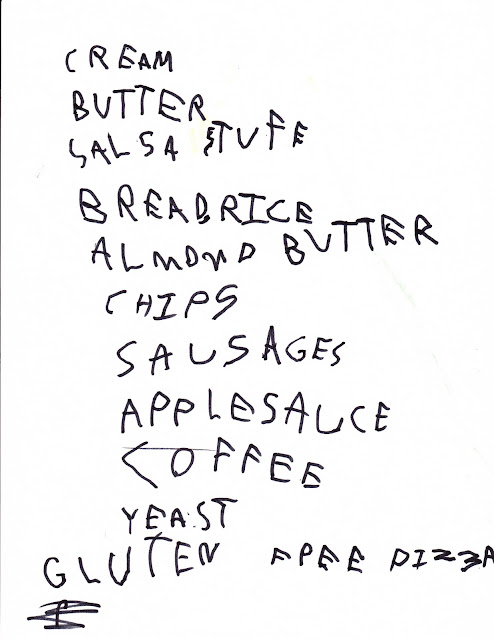 CREAM
BUTTER
SALSA STUFF
BREAD,RICE
ALMOND BUTTER
CHIPS
SAUSAGES
APPLESAUCE
COFFEE
YEAST
GLUTEN FREE PIZZA